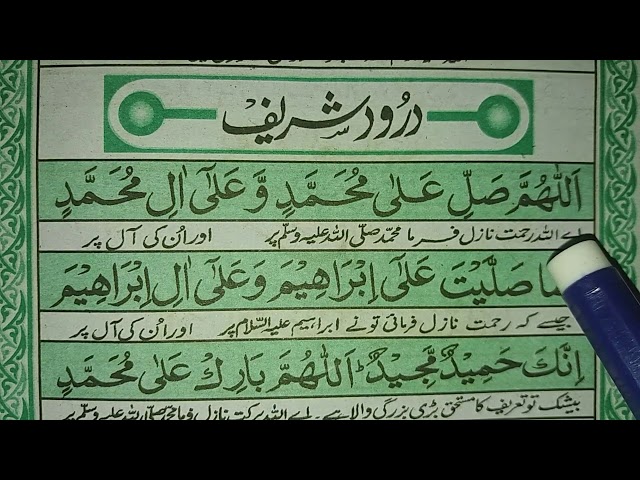 درُود شریف
اَللّٰهُمَّ صَلِّ عَلٰی مُحَمَّدٍ وَّ عَلٰٓی اٰلِ مُحَمَّدٍ
اے اللہ رحمت نازل فرما محمد صلّی اللہ علیہ وسلّم پر اور اُن کی آل پر
صَلَّيْتَ عَلٰٓی اِبْرَاهِيْمَ وَعَلٰٓی اٰلِ اِبْرَاهِيْمَ
جیسے کہ رحمت نازل فرمائی تو نے ابراہیم علیہ السّلام پر اور اُن کی آل پر
اِنَّكَ حَمِيْدٌ مَّجِيْدٌ ؕ اَللّٰهُمَّ بَارِكْ عَلٰی مُحَمَّدٍ
بیشک تو تعریف کا مستحق بڑی بزرگی والا ہے۔ اے اللہ برکت نازل فرما محمد صلّی اللہ علیہ وسلّم پر